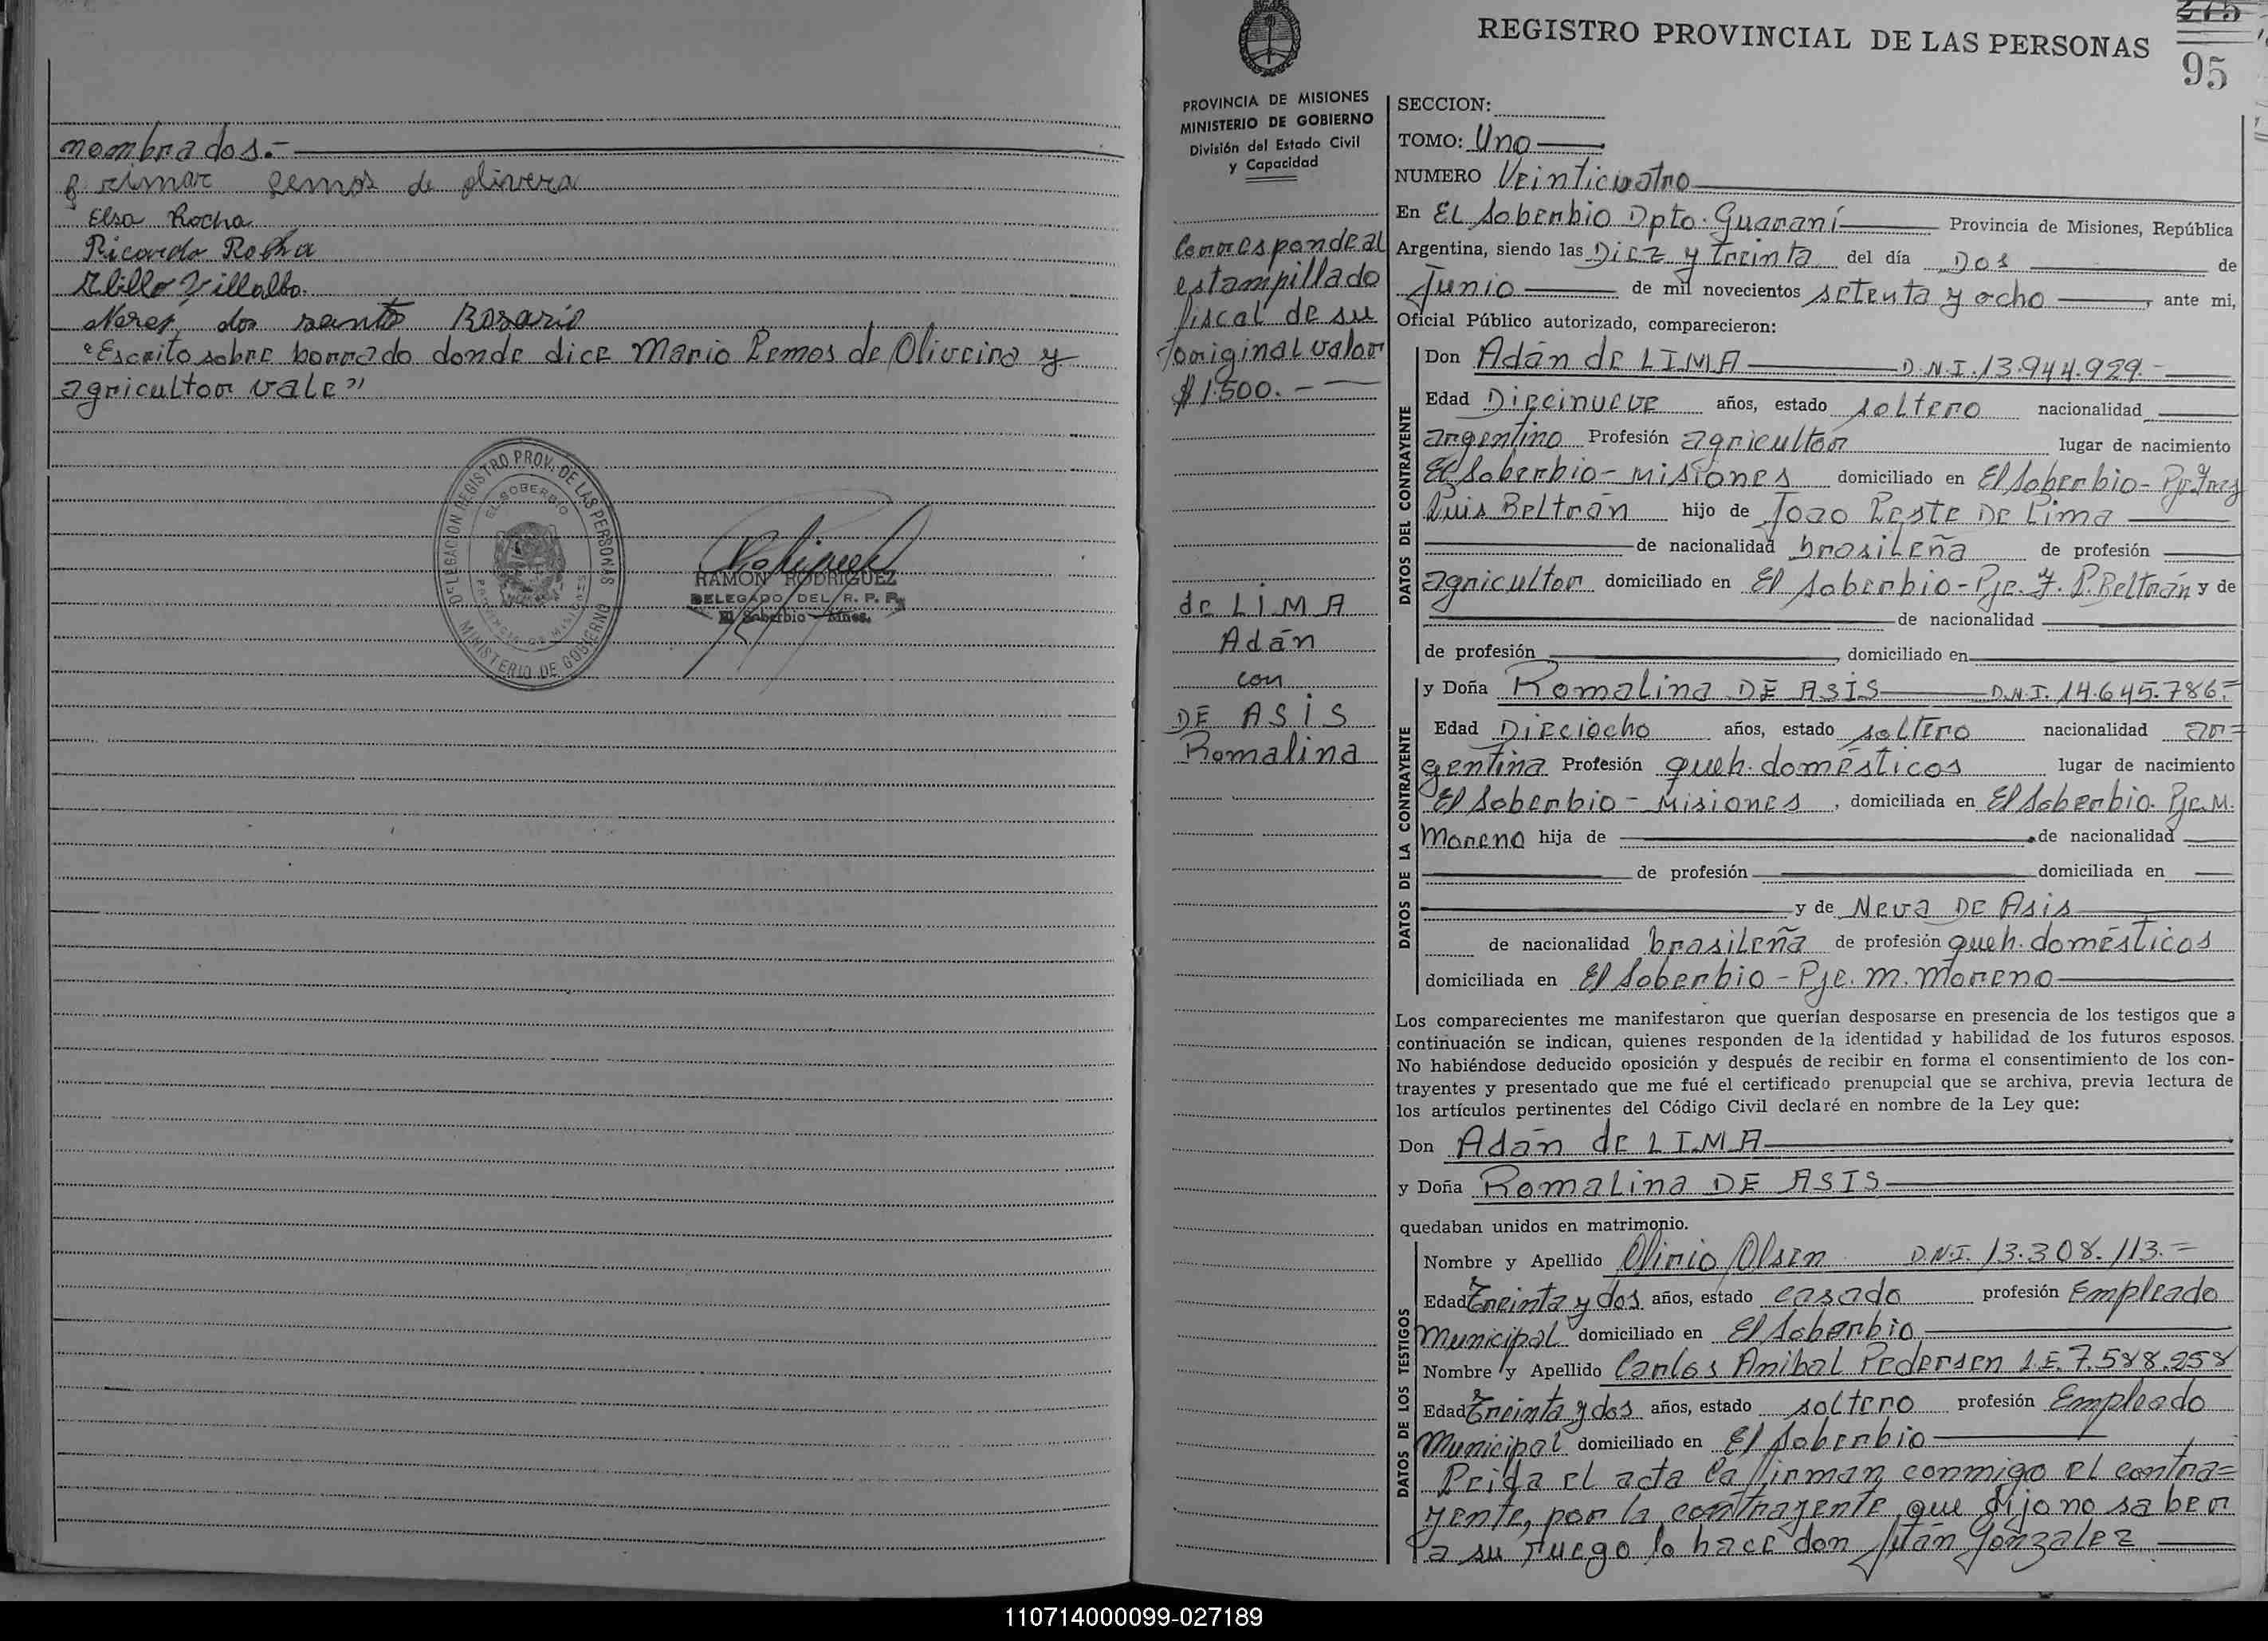 nombrados.-
Elsa Rocha
Ricardo Rocha
Villalba
dos santo Rosario
"Escrito sobre borrado donde dice Mario Lemos de Oliveira y
agricultor vale"
DELEGACION REGISTRO PROV. DE LAS PERSONAS
EL SOBERBIO
PROVINCIA DE MISIONES
MINISTERIO DE GOBIERNO
RAMON RODRIGUEZ
DELEGADO DEL R. P. P.
El Soberbio - Mnes.
REGISTRO PROVINCIAL DE LAS PERSONAS
95
PROVINCIA DE MISIONES
MINISTERIO DE GOBIERNO
División del Estado Civil
y Capacidad
Corresponde al
estampillado
fiscal de su
original valor
$ 1.500.-
de LIMA
Adán
con
DE ASIS
Romalina
SECCION:
TOMO: Uno
NUMERO Veinticuatro
En El Soberbio Dpto. Guaraní Provincia de Misiones, República
Argentina, siendo las Diez y treinta del día Dos de
Junio de mil novecientos setenta y ocho, ante mi,
Oficial Público autorizado, comparecieron:
DATOS DEL CONTRAYENTE
Don Adán de LIMA D.N.I. 13.944.929.-
Edad Diecinueve años, estado soltero nacionalidad
argentino Profesión agricultor lugar de nacimiento
El Soberbio - Misiones domiciliado en El Soberbio - Pje. Fray
Luis Beltrán hijo de Joao Leste De Lima
de nacionalidad brasileña de profesión
agricultor domiciliado en El Soberbio - Pje. F. L. Beltrán y de
de nacionalidad
de profesión , domiciliado en
DATOS DE LA CONTRAYENTE
y Doña Romalina DE ASIS D.N.I. 14.645.786.=
Edad Dieciocho años, estado soltero nacionalidad ar=
gentina Profesión queh. domésticos lugar de nacimiento
El Soberbio - Misiones , domiciliada en El Soberbio. Pje. M.
Moreno hija de de nacionalidad
de profesión domiciliada en
y de Neva De Asis
de nacionalidad brasileña de profesión queh. domésticos
domiciliada en El Soberbio - Pje. M. Moreno
Los comparecientes me manifestaron que querían desposarse en presencia de los testigos que a
continuación se indican, quienes responden de la identidad y habilidad de los futuros esposos.
No habiéndose deducido oposición y después de recibir en forma el consentimiento de los con-
trayentes y presentado que me fué el certificado prenupcial que se archiva, previa lectura de
los artículos pertinentes del Código Civil declaré en nombre de la Ley que:
Don Adán de LIMA
y Doña Romalina DE ASIS
quedaban unidos en matrimonio.
DATOS DE LOS TESTIGOS
Nombre y Apellido Olirio Olsen D.N.I. 13.308.113.=
Edad Treinta y dos años, estado casado profesión Empleado
Municipal domiciliado en El Soberbio
Nombre y Apellido Carlos Anibal Pedersen L.E. 7.588.958
Edad Treinta y dos años, estado soltero profesión Empleado
Municipal domiciliado en El Soberbio
Leida el acta la firman conmigo el contra=
yente, por la contrayente que dijo no saber
a su ruego lo hace don Juán Gonzalez
110714000099-027189